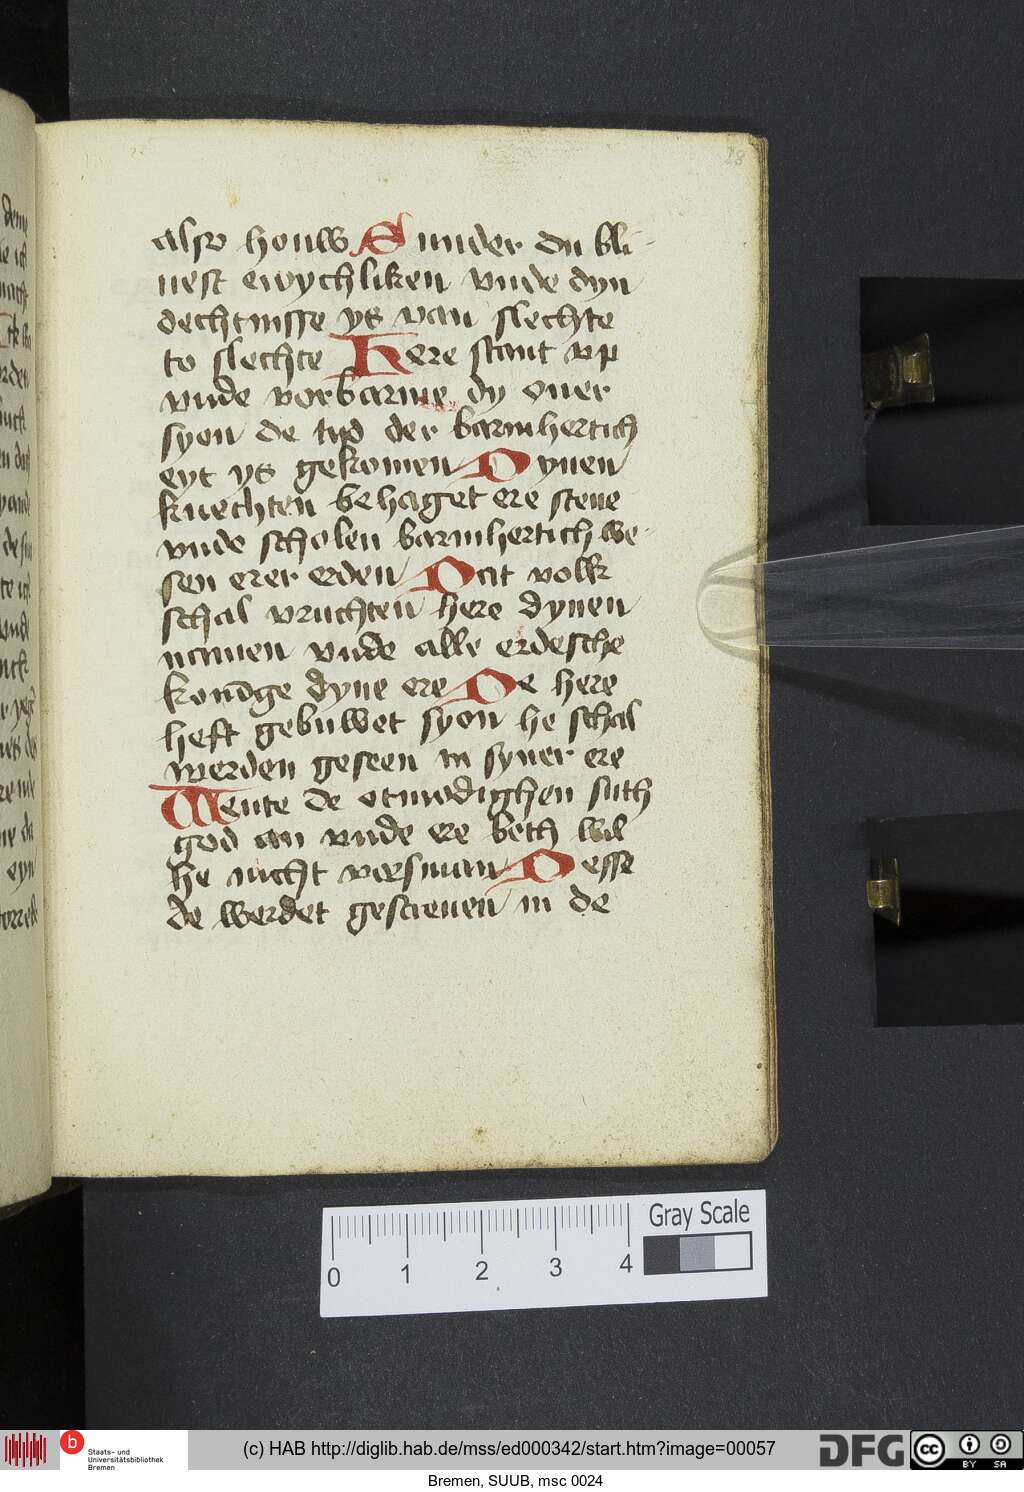 28
also houw Sunder du bli-
uest ewychliken vnde dyn
dechtnisse ys van slechte
to slechte Here stant vp
vnde vorbarme dy ouer
syon de tyd der barmhertich
eyt ys gekomen Dynen
knechten behaget ere stene
vnde scholen barmhertich we-
sen erer erden Dat volk
schal vruchten here dynen
namen vnde alle erdesche
konige dyne ere De here
heft gebuwet syon he schal
werden geseen in syner ere
Wente de otmodighen suth
god an vnde ere beth wil
he nicht vorsman Desse
de werdet gescreuen in de
0 1 2 3 4 Gray Scale
Staats- und
Universitätsbibliothek
Bremen
(c) HAB http://diglib.hab.de/mss/ed000342/start.htm?image=00057
DFG
cc BY SA
Bremen, SUUB, msc 0024